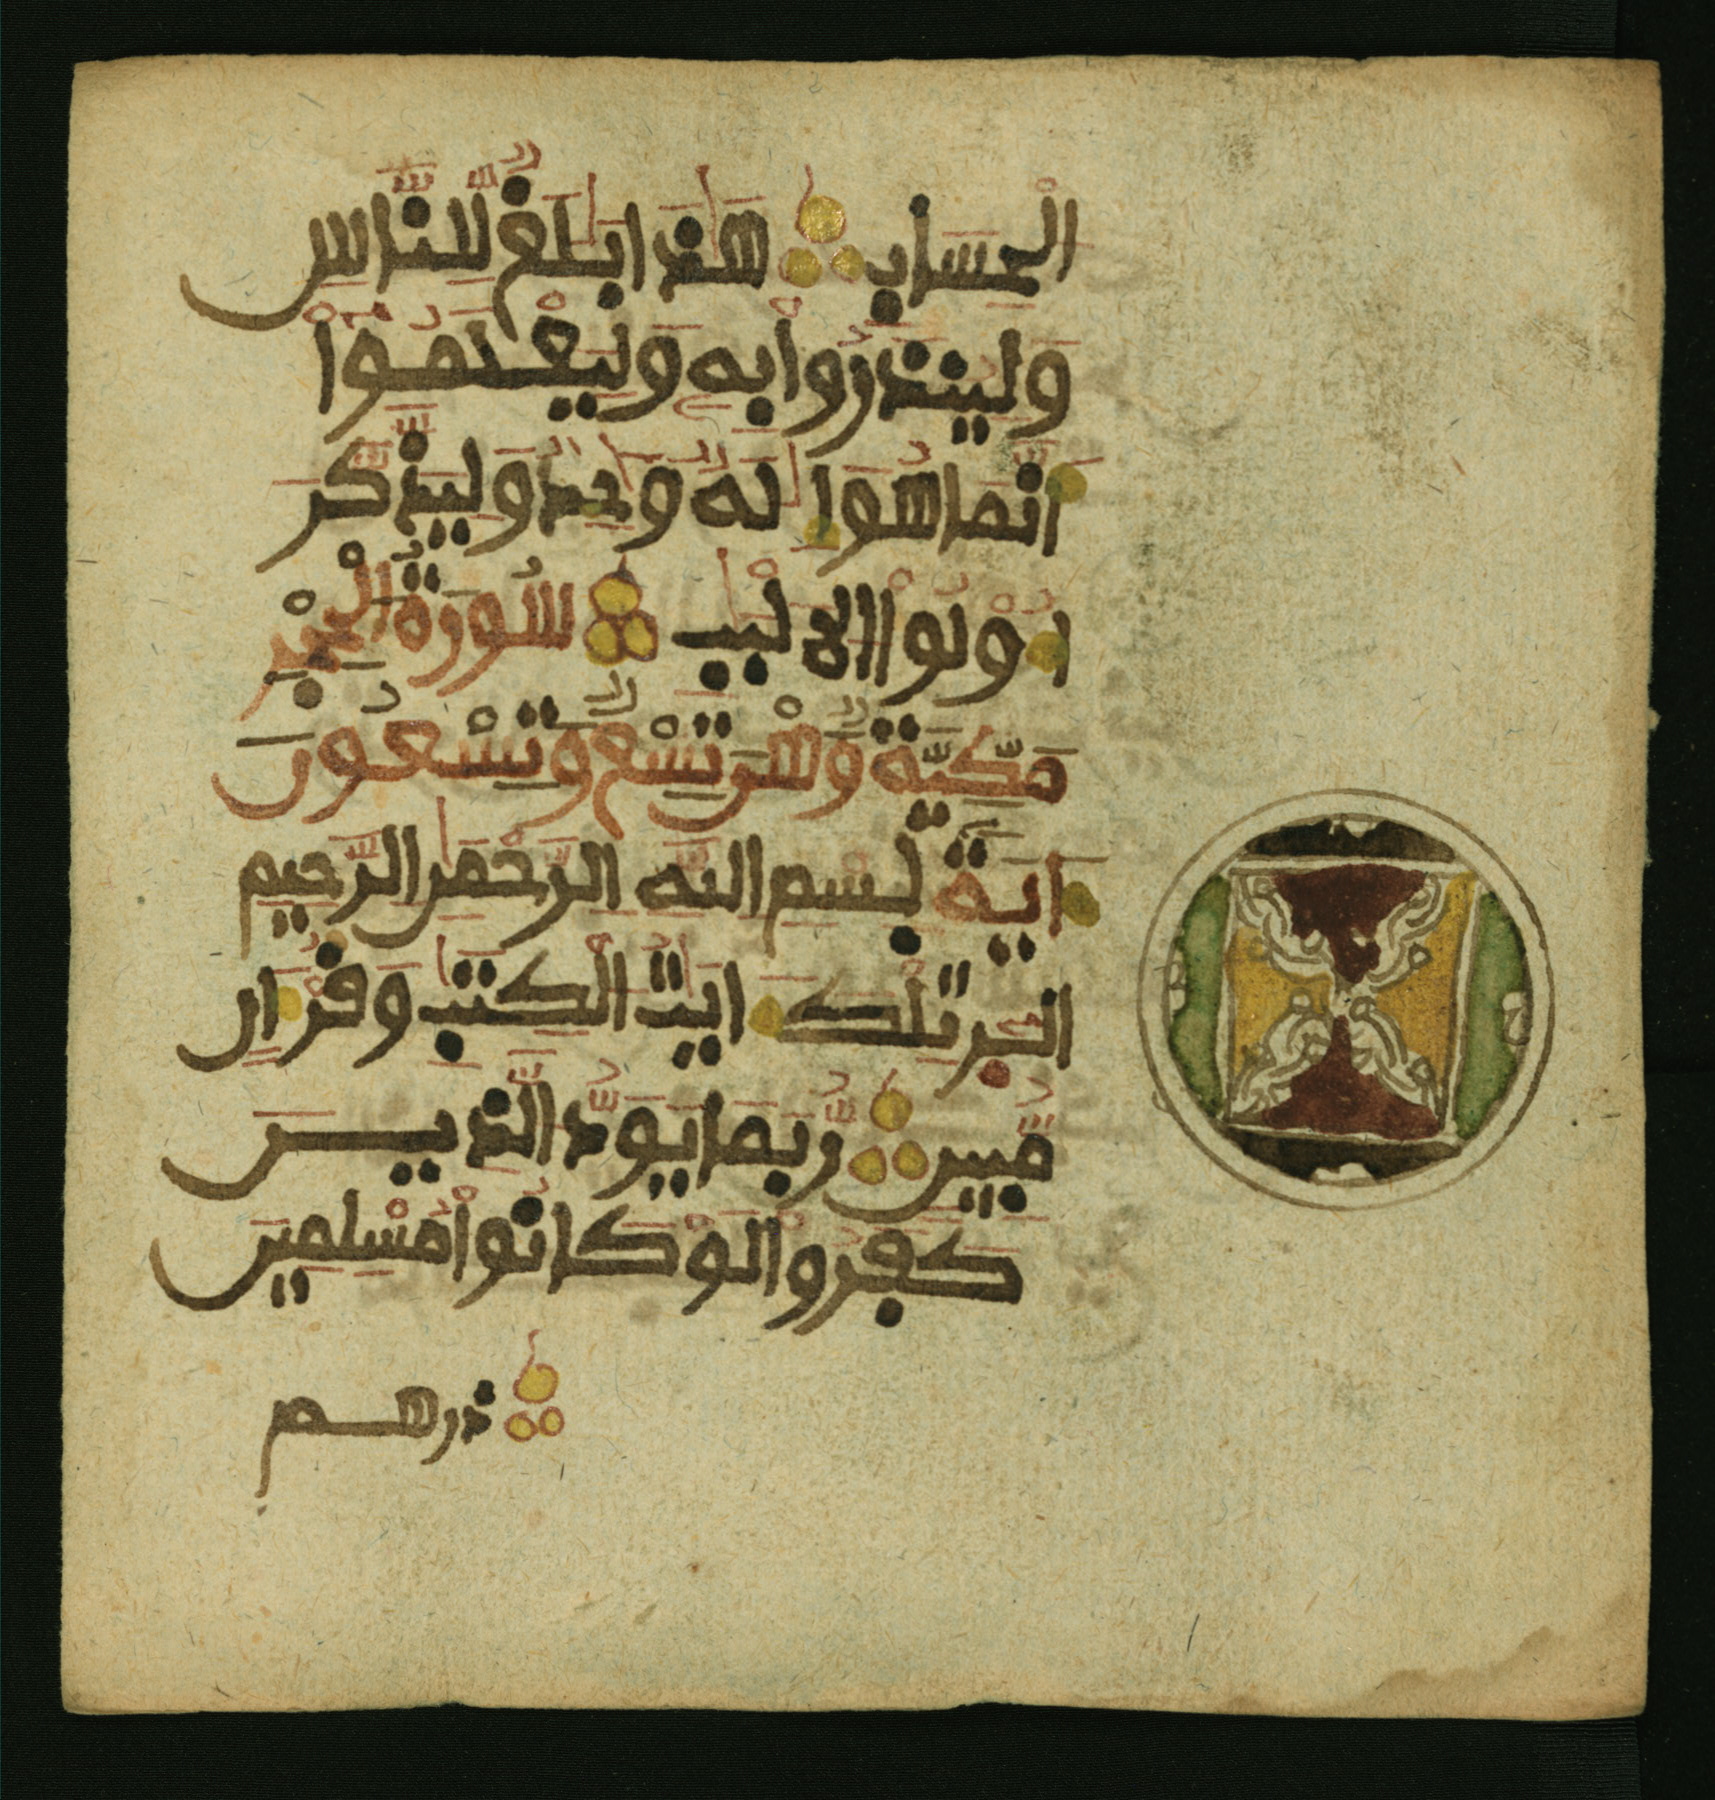 الحساب هذا بلغ للناس
ولينذروا به وليعلموا
أنما هو إله وحد وليذكر
أولوا الالبب سُورَةُ الْحِجْرِ
مَكِّيَّةٌ وَهْيَ تِسْعٌ وَتِسْعُونَ
ءايَةً بسم الله الرحمن الرحيم
الر تلك ءايت الكتب وقرءان
مبين ربما يود الذين
كفروا لو كانوا مسلمين
ذرهم